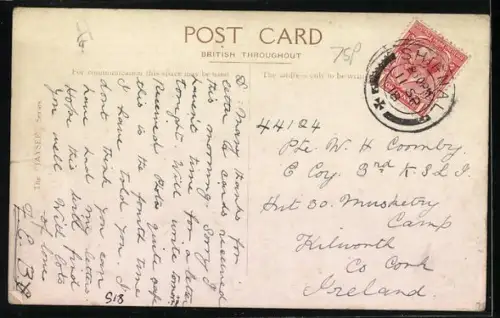 POST CARD
BRITISH THROUGHOUT
75p
For communication this space may be used
The address only to be written
The "JAYSEE" Series
SHIFNAL
11 SP
18
D. Mary thanks for
letter & cards received
this morning. Sorry I
havent time for a letter
tonight. Will write tomorrow
Received Photo quite safe
this is the fourth time
I have told you. I
dont think you ever
have had my letters
Hope this will find
you well Will lots
of love
44124
Pte. W. H Coomby
E Coy. 3rd K.S.L.I
Hut 30. Musketry
Camp
Kilworth
Co Cork
Ireland.